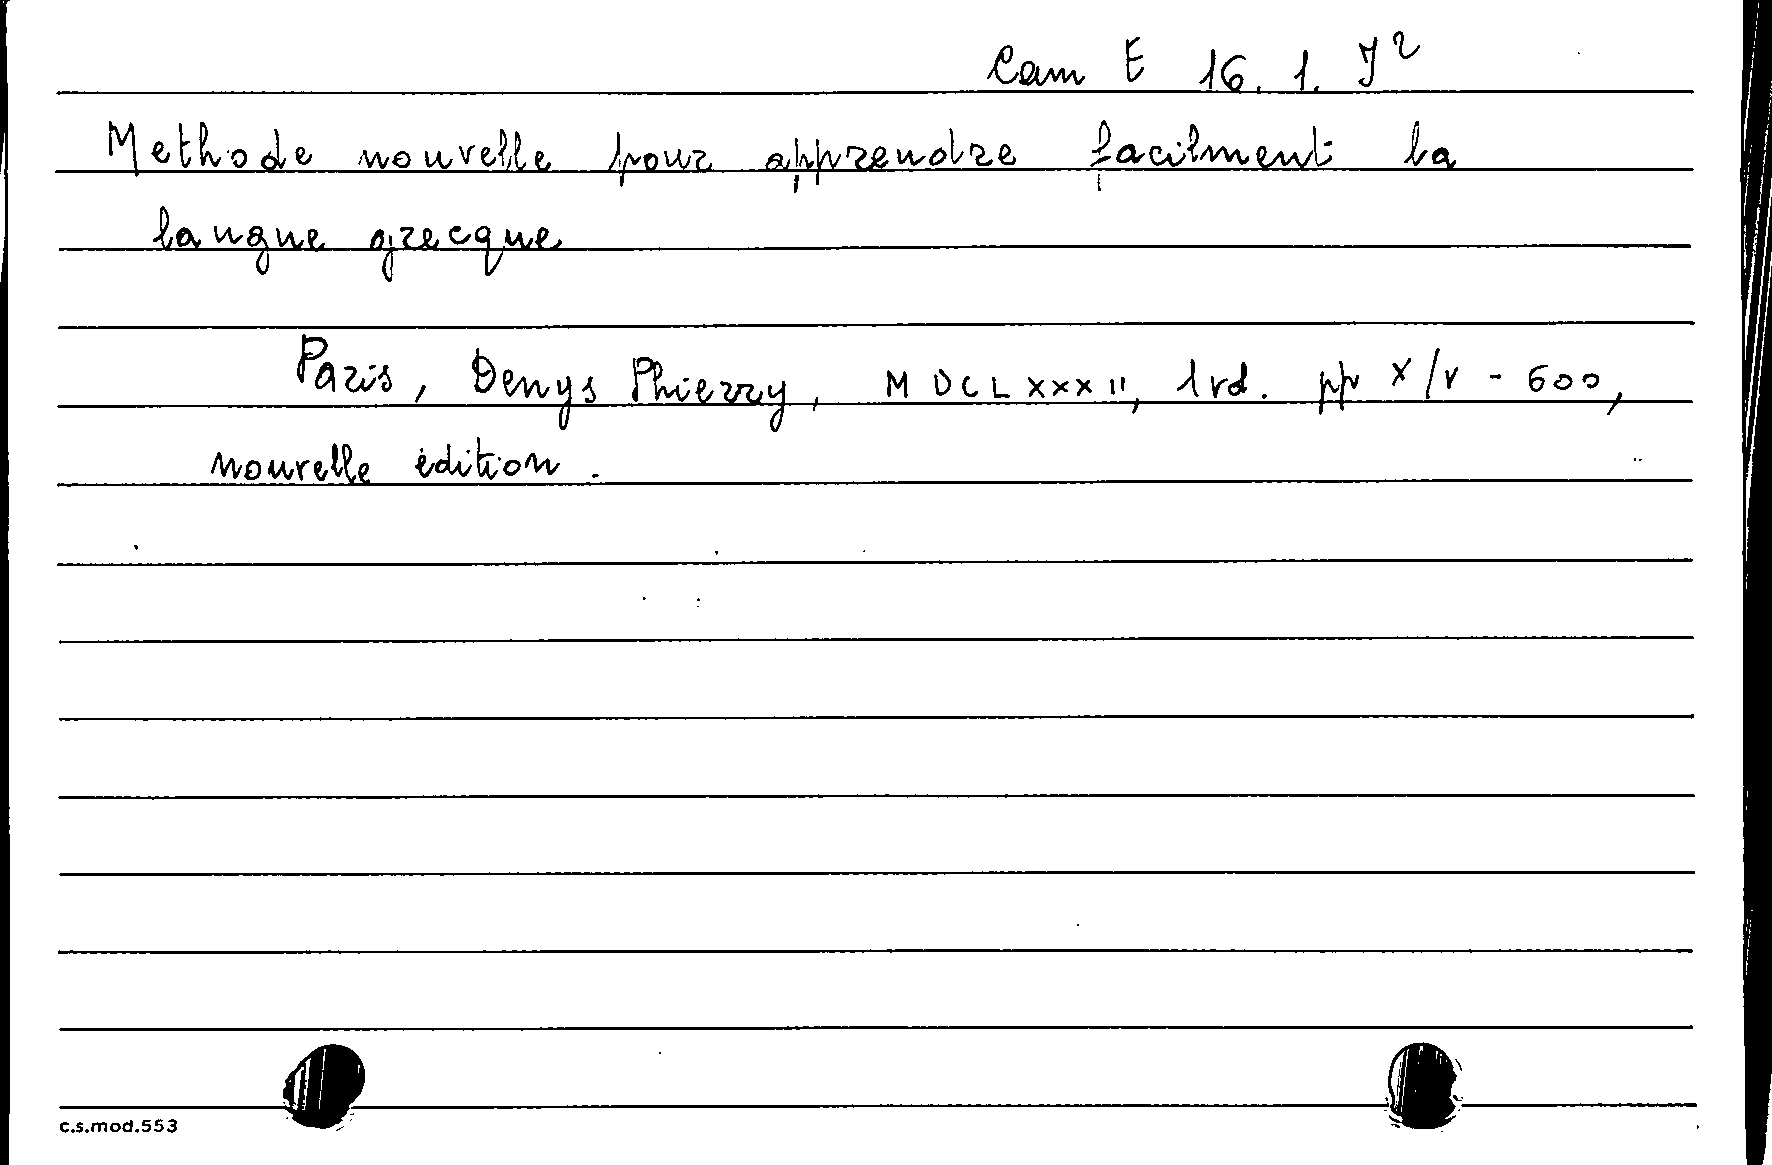 Cam E 16. 1. J²
Methode nouvelle pour apprendre facilment la
langue grecque
Paris, Denys Thierry, MDCLXXXII, 1 vol. pp X/V - 600,
nouvelle édition.
c.s.mod.553